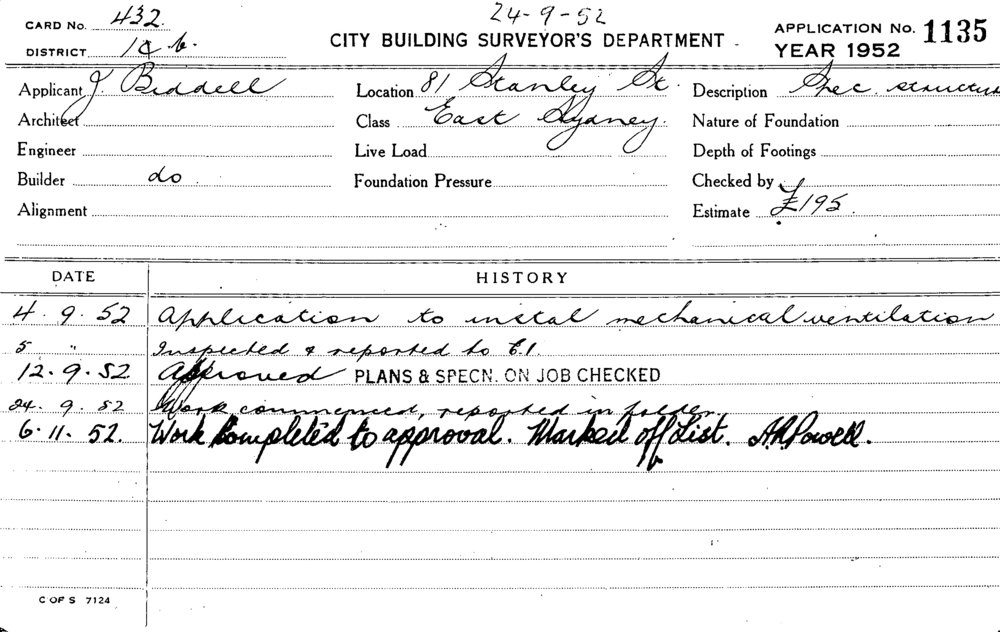 CARD No. 432. 24-9-52 APPLICATION No. 1135
DISTRICT CITY BUILDING SURVEYOR'S DEPARTMENT YEAR 1952
Applicant J Biddell Location 81 Stanley St. Description Spec. structure
Architect Class East Sydney. Nature of Foundation
Engineer Live Load Depth of Footings
Builder do Foundation Pressure Checked by
Alignment Estimate £195.
DATE HISTORY
4. 9. 52 Application to instal mechanical ventilation
5 " Inspected & reported to C.I.
12. 9. 52 Approved PLANS & SPECN. ON JOB CHECKED
24. 9. 52 Work commenced, reported in folder
6. 11. 52. Work Completed to approval. Marked off List. A.R.Powell.
C OF S 7124